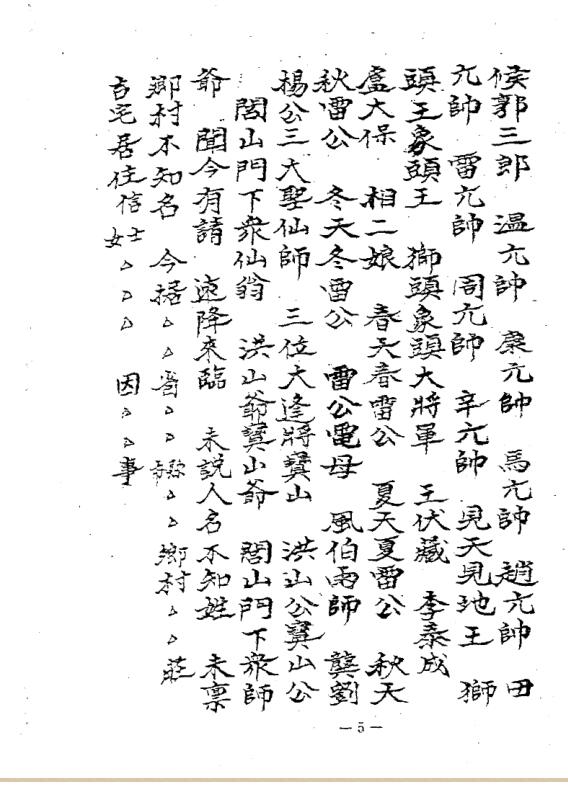 侯郭三郎　溫元帥　康元帥　馬元帥　趙元帥　田
元帥　雷元帥　周元帥　辛元帥　見天見地王　獅
頭王象頭王　獅頭象頭大將軍　王伏藏　李泰成
盧大保　相二娘　春天春雷公　夏天夏雷公　秋天
秋雷公　冬天冬雷公　雷公電母　風伯雨師　龔劉
楊公三大聖仙師　三位大逢將龔山　洪山公龔山公
閭山門下衆仙翁　洪山爺龔山爺　閭山門下衆師
爺　聞今有請　速降來臨　未説人名不知姓　未禀
鄉村不知名　今據△△省△△縣△△鄉村△△莊
吉宅居住信士女△△△　因△△事
—5—